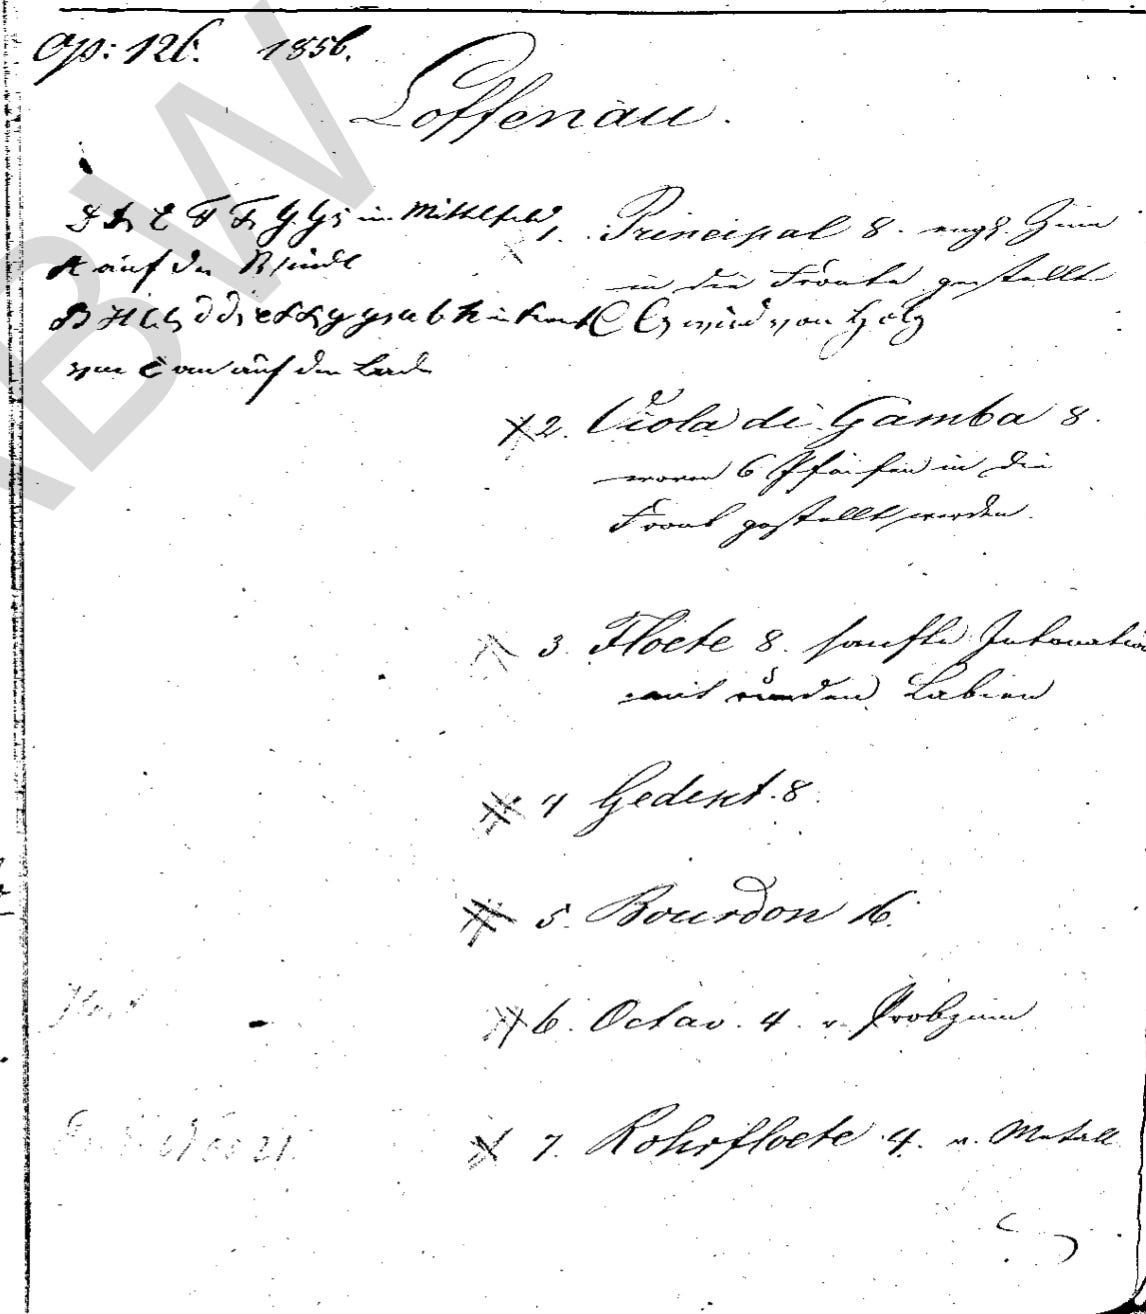 op: 126. 1856.
Loffenau.
D Ds E F Fs G Gs in Mittelfeld
A auf der
B H c cs d ds e f fs g gs a b h in Front
von c an auf der Lade
1. Principal 8. engl Zinn
in die Fronte gestellt
C Cs wird von Holz
2. Viola di Gamba 8.
wovon 6 Pfeifen in die
Front gestellt werden.
3 Floete 8. sanfte Intonation
mit runden Labien
4 Gedekt. 8.
5. Bourdon 16.
6. Octav. 4. v. Probzinn
7. Rohrfloete 4. v. Metall
BW